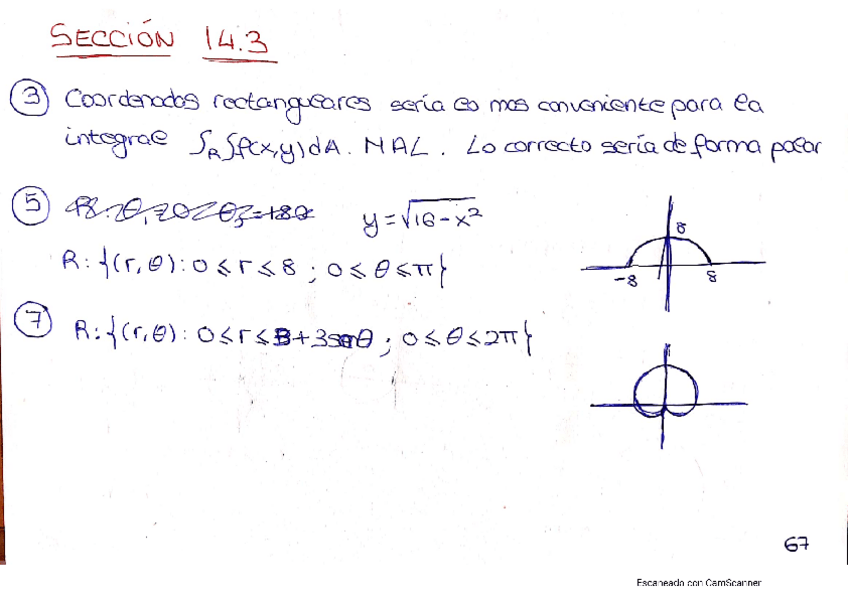 SECCIÓN 14.3
③ Coordenadas rectangulares sería lo mas conveniente para la
integral ∫R∫f(x,y)dA. MAL. Lo correcto sería de forma polar
⑤ y=√16-x²
8
R:{(r,θ): 0≤r≤8 ; 0≤θ≤π}
-8 8
⑦ R:{(r,θ): 0≤r≤3+3senθ ; 0≤θ≤2π}
67
Escaneado con CamScanner